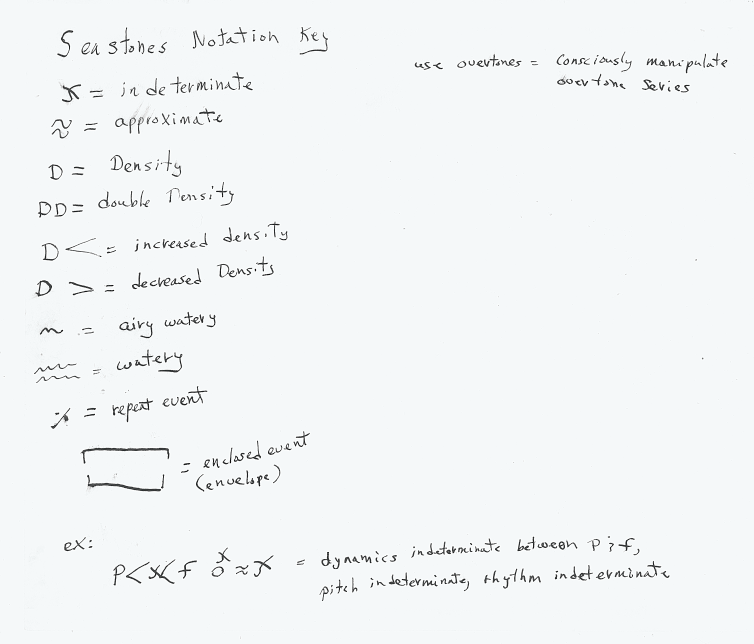 Seastones Notation Key
use overtones = Consciously manipulate
overtone Series
X = indeterminate
≈ = approximate
D = Density
DD = double Density
D < = increased density
D > = decreased Density
~ = airy watery
= watery
٪ = repeat event
= enclosed event
(envelope)
ex:
P<X<f = dynamics indeterminate between P & f,
pitch indeterminate, rhythm indeterminate